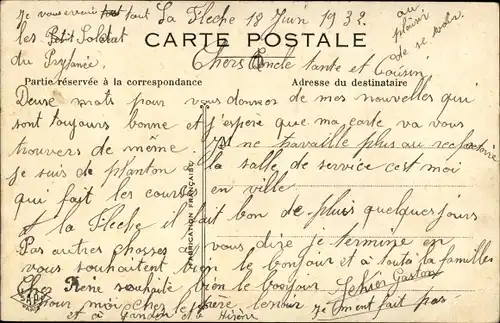 je vous envoie tout fait La Fleche 18 Juin 1932
les Petit Soldat
du Prytanée.
au
plaisir
de se voir
CARTE POSTALE
Chers Oncle tante et Cousin
Partie réservée à la correspondance
Adresse du destinataire
Deuse mots pour vous donner de mes nouvelles qui
sont toujours bonne et j'espère que ma carte va vous
trouvers de même. Je ne travaille plus au refectoire
je suis de planton a la salle de service c'est moi
qui fait les courses en ville
et la Fleche il fait bon de plus quelques jours
Pas autres chosses a vous dire je termine en
vous souhaitent bien le bonjour et a toute la familles
Cher Rene souhaite bien le bonjour
pour moi chez le père
je ment fait pas
et a
FABRICATION FRANÇAISE